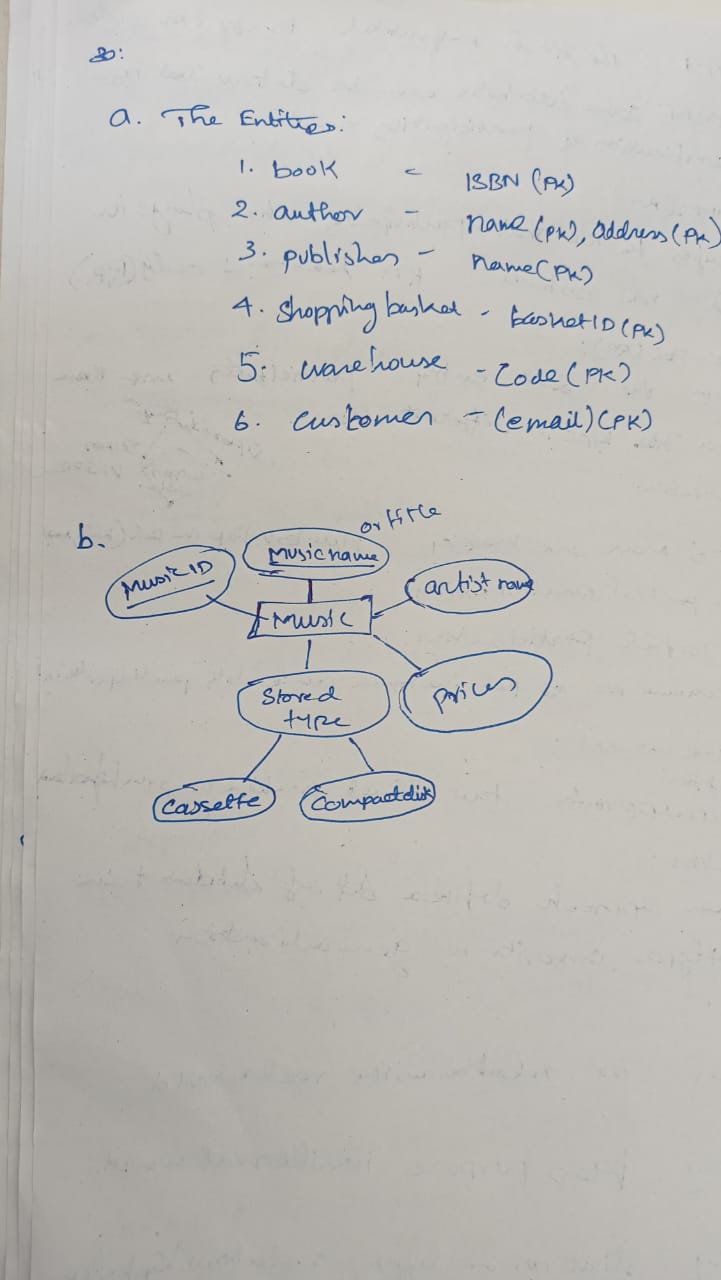 30:
a. The Entities:
1. book - ISBN (PK)
2. author - name (PK), address (PK)
3. publisher - name (PK)
4. Shopping basket - basketID (PK)
5. warehouse - Code (PK)
6. customer - (email) (PK)
b.
or title
Music name
Music ID
artist name
Music
Stored
type
prices
Cassette
Compact disk